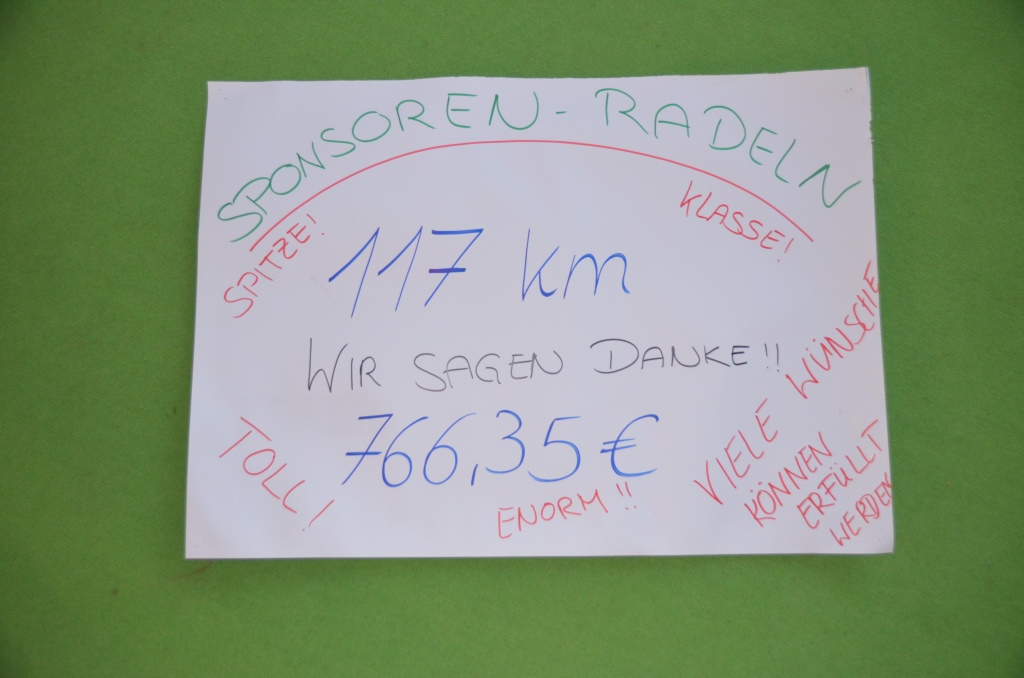 SPONSOREN-RADELN
SPITZE!
KLASSE!
117 km
WIR SAGEN DANKE!!
766,35€
TOLL!
ENORM!!
VIELE WÜNSCHE
KÖNNEN
ERFÜLLT
WERDEN